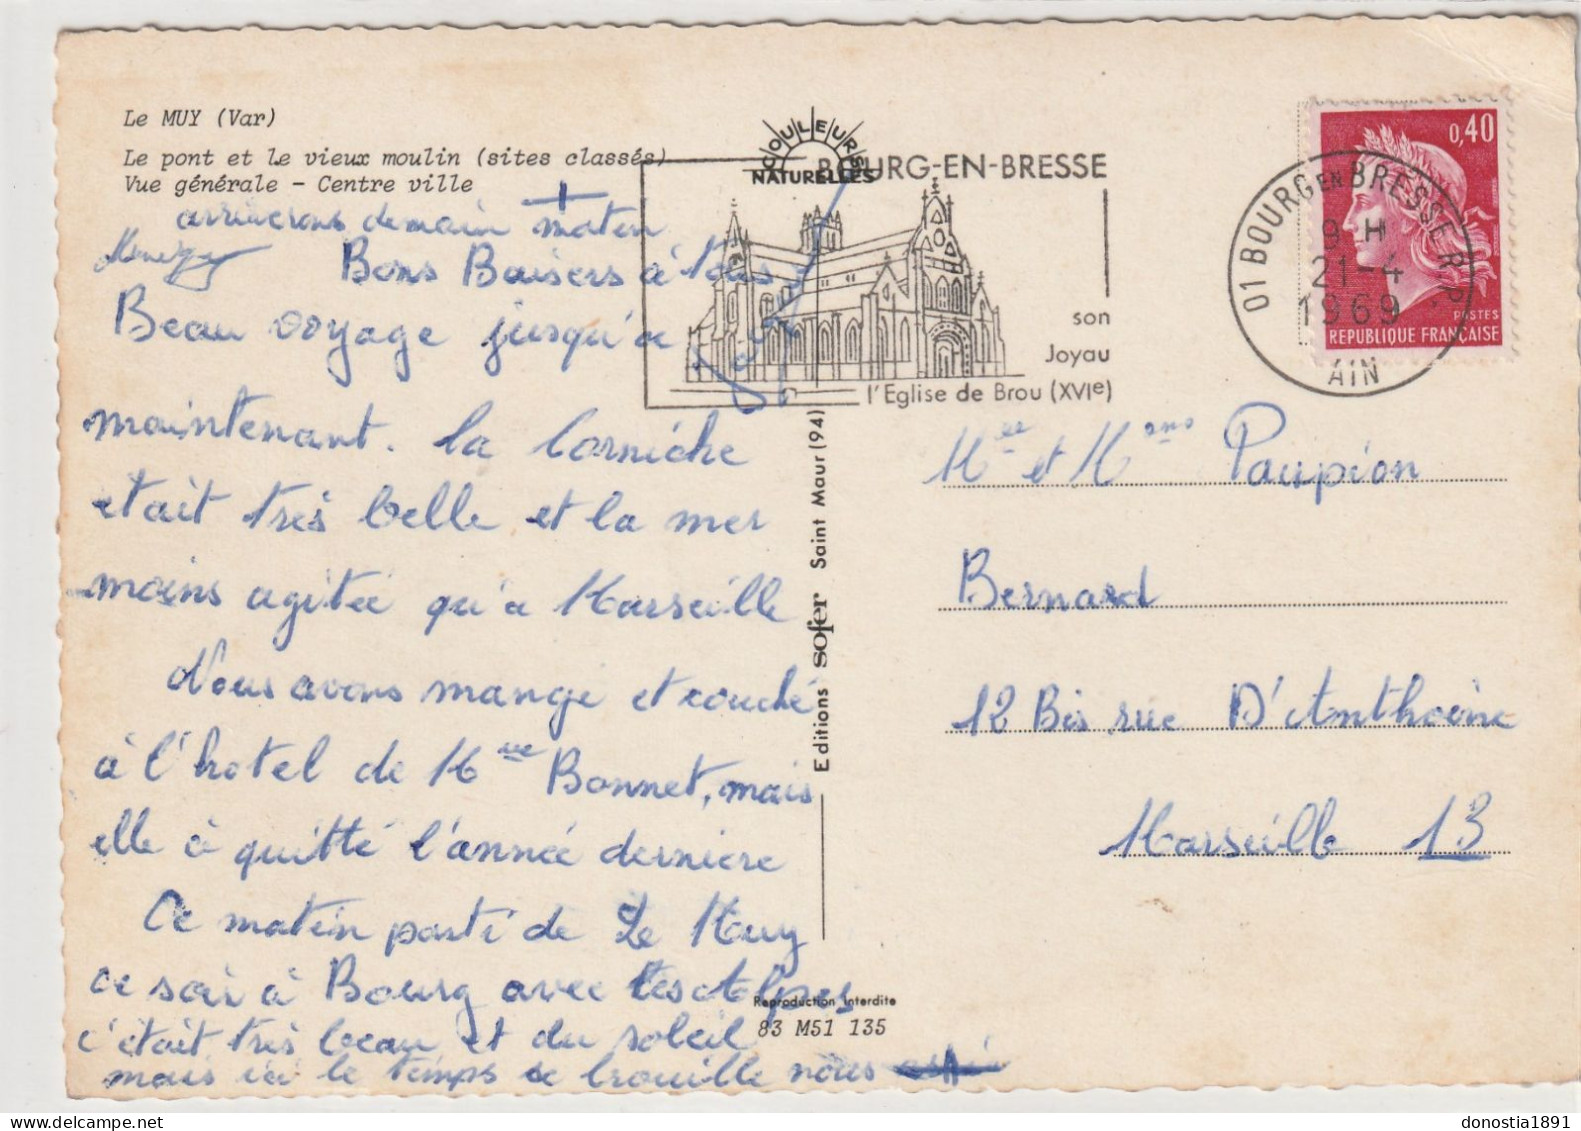 Le MUY (Var)
Le pont et le vieux moulin (sites classés)
Vue générale - Centre ville
COULEURS
NATURELLES
BOURG-EN-BRESSE
son
Joyau
l'Eglise de Brou (XVIe)
0,40
POSTES
REPUBLIQUE FRANÇAISE
01 BOURG EN BRESSE R.P.
9 H
21-4
1969
AIN
arriverons demain matin
Bons Baisers à tous
Beau voyage jusqu'a
maintenant. la Corniche
etait très belle et la mer
moins agitée qu'a Marseille
Nous avons mangé et couché
à l'hotel de Mme Bonnet, mais
elle à quitté l'année derniere
Ce matin parti de Le Muy
ce soir à Bourg avec les Alpes
c'était très beau et du soleil
mais ici le temps se brouille nous
Editions sofer Saint Maur (94)
Reproduction interdite
83 M51 135
et Paupion
Bernard
12 Bis rue D'Anthoine
Marseille 13
donostia1891